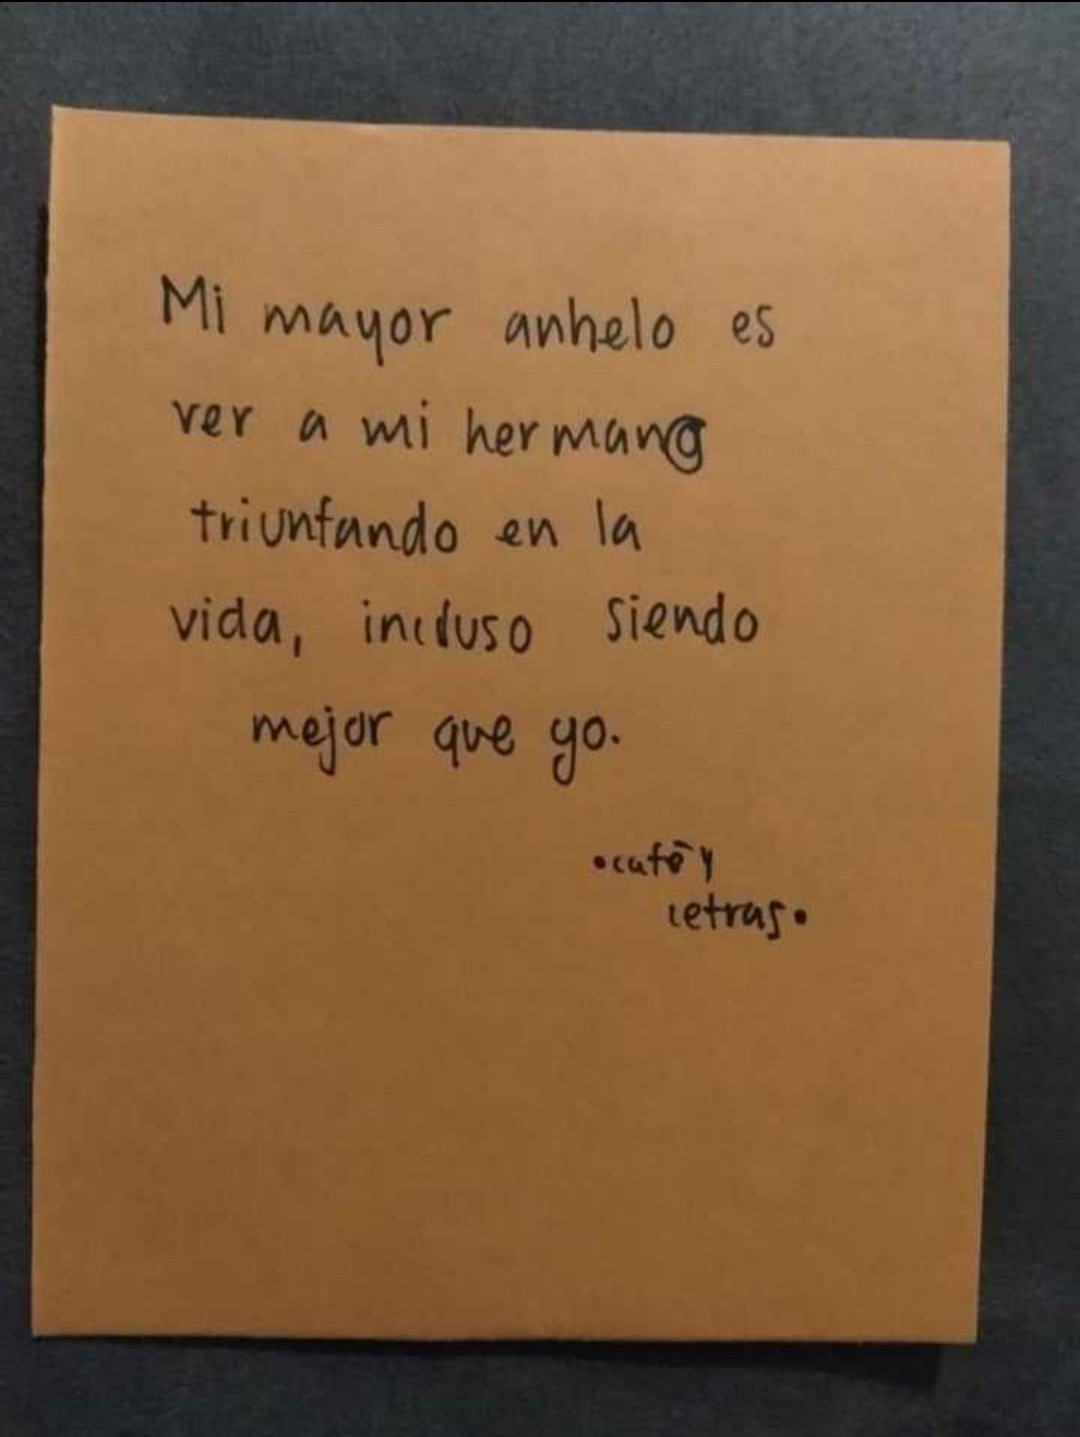 Mi mayor anhelo es
ver a mi herman@
triunfando en la
vida, incluso siendo
mejor que yo.
•café y
letras•